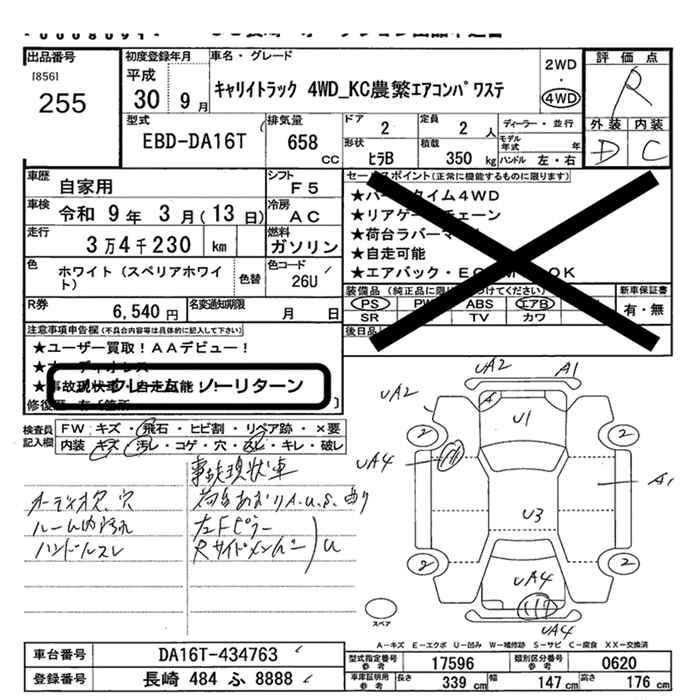 出品番号
[856]
255
初度登録年月
平成
30 9月
車名・グレード
キャリイトラック 4WD_KC農繁エアコンパワステ
2WD
・
4WD
評価点
R
外装 内装
D C
型式
EBD-DA16T
排気量
658
CC
ドア
2
定員
2人
ディーラー・並行
モデル年式 年
形状
ヒラB
積載
350kg
ハンドル 左・右
車歴
自家用
シフト
F5
車検
令和 9年 3月(13日)
冷房
AC
走行
3万4千230 km
燃料
ガソリン
色
ホワイト(スペリアホワイト)
色替
色コード
26U
R券
6,540円
名変通知期限
月 日
セールスポイント(正常に機能するものに限ります)
★パートタイム4WD
★リアゲートチェーン
★荷台ラバーマット
★自走可能
★エアバック・
OK
装備品
PS
ABS
エアB
SR
TV
カワ
新車保証書
有・無
後日品
注意事項申告欄(不具合内容等は具体的に記入して下さい)
★ユーザー買取!AAデビュー!
ノークレーム ノーリターン
検査員記入欄
FW キズ・飛石・ヒビ割・リペア跡・×要
内装 キズ・汚レ・コゲ・穴・スレ・キレ・破レ
事故現状車
オーディオ欠、穴
ルーム内汚れ
ハンドルスレ
荷台あおりA.U.S.有り
左Fピラー
Rサイドメンバー
U
UA2
A1
UA2
A
U1
2
2
UA4
A1
U3
2
2
UA4
UA4
スペア
A-キズ E-エクボ U-凹み W-補修跡 S-サビ C-腐食 XX-交換済
車台番号
DA16T-434763
登録番号
長崎 484 ふ 8888
型式指定番号
参考
17596
類別区分番号
参考
0620
車庫証明用
参考
長さ
339cm
幅
147cm
高さ
176cm